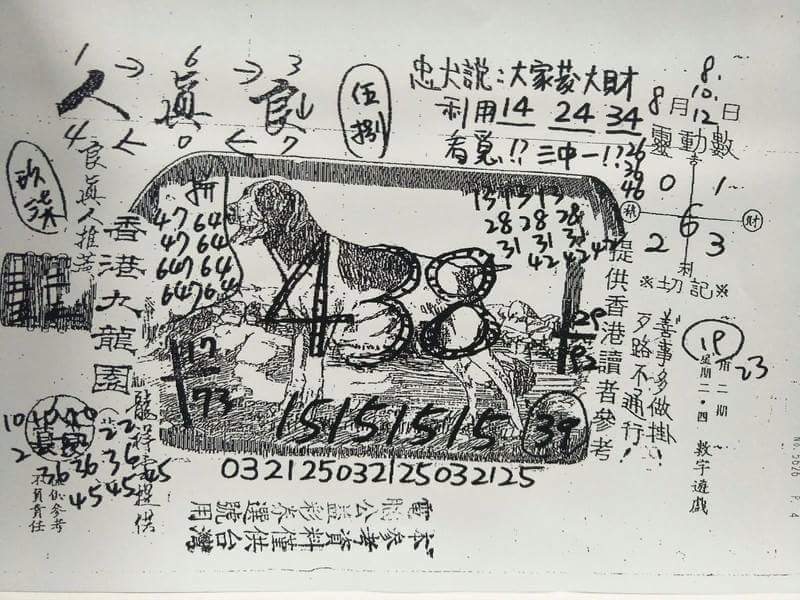 1 → 6 → 3
人 真 良
4 ← 0 ← 7
伍捌
忠犬説：大家發大財
利用 14 24 34
看覓!? 三中一!? 26
36
46
8.
10.
8月12日
靈動數
0 1
6
2 3
財
※切記※
善事多做掛！
歹路不通行！
提供香港讀者參考
19
23
星期二·四 數字遊戲
NO.5626 P. 4
良真人推薦
香港九龍園
拼
47 64
47 64
647 64
647 64
13 13 13
28 28 28
31 31 31
42 42 42 42
438
17
73
29
15 15 15 15 39
032125032125032125
10
2
22
36 36 36
45 45 45
僅供參考
不負責任
本參考資料僅供台灣
電腦公益彩券選號用